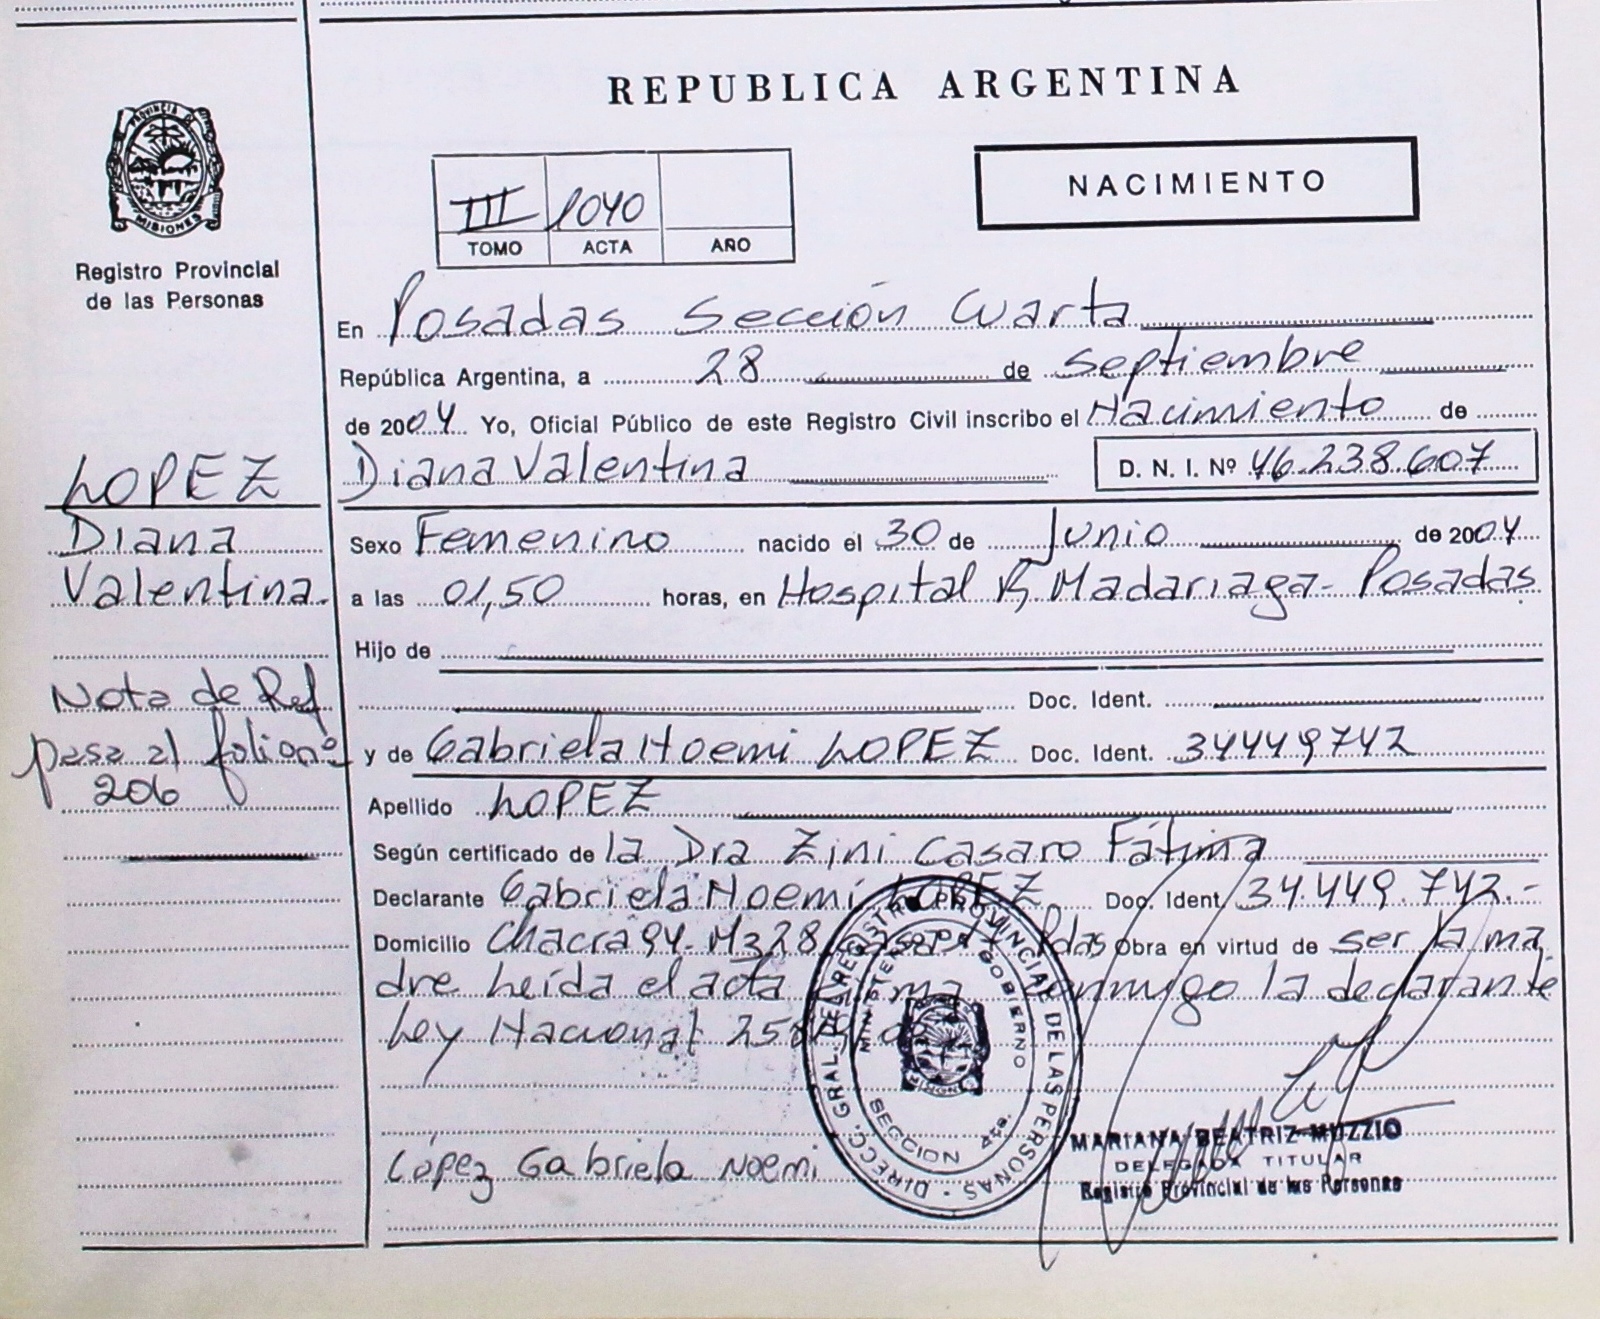 REPUBLICA ARGENTINA
PROVINCIA DE
MISIONES
Registro Provincial
de las Personas
III 1040
TOMO ACTA AÑO
NACIMIENTO
En Posadas Sección Cuarta
República Argentina, a 28 de septiembre
de 2004 Yo, Oficial Público de este Registro Civil inscribo el Nacimiento de
Diana Valentina D. N. I. Nº 46.238.607
LOPEZ
Diana
Valentina.
Nota de Ref
pasa al folio nº
206
Sexo Femenino nacido el 30 de Junio de 2004
a las 01,50 horas, en Hospital R, Madariaga - Posadas
Hijo de
Doc. Ident.
y de Gabriela Noemi LOPEZ Doc. Ident. 34449742
Apellido LOPEZ
Según certificado de la Dra Zini Casaro Fátima
Declarante Gabriela Noemi LOPEZ Doc. Ident 34.449.742.-
Domicilio Chacra 94. Mz 28 Casa Pdas Obra en virtud de ser la ma
dre Leída el acta firma conmigo la declarante
Ley Nacional
López Gabriela Noemi
DIRECC. GRAL. DEL REGISTRO PROVINCIAL DE LAS PERSONAS
MINISTERIO GOBIERNO
SECCION 4ta.
MARIANA BEATRIZ MUZZIO
DELEGADA TITULAR
Registro Provincial de las Personas